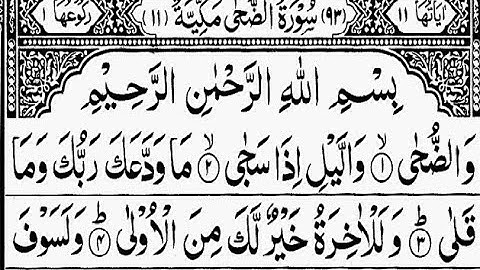 اٰيَاتُهَا ١١ (٩٣) سُوْرَةُ الضُّحٰى مَكِّيَّةٌ (١١) رُكُوْعُهَا ١
بِسْمِ اللّٰهِ الرَّحْمٰنِ الرَّحِيْمِ
وَالضُّحٰى ۙ‏ ﴿١﴾ وَالَّيْلِ اِذَا سَجٰى ۙ‏ ﴿٢﴾ مَا وَدَّعَكَ رَبُّكَ وَمَا
قَلٰى ؕ‏ ﴿٣﴾ وَلَلْاٰخِرَةُ خَيْرٌ لَّكَ مِنَ الْاُوْلٰى ؕ‏ ﴿٤﴾ وَلَسَوْفَ